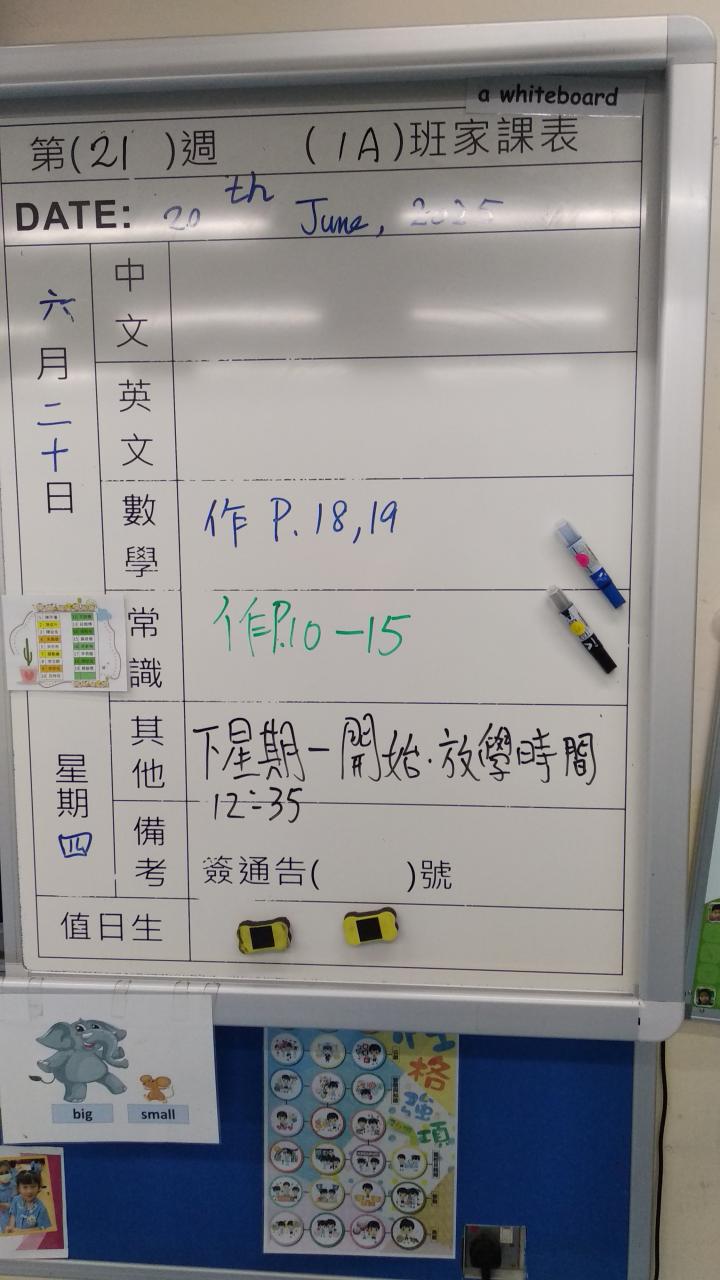 a whiteboard
第(21 )週 (1A)班家課表
DATE: 20th June, 2025
六月二十日
星期四
中文
英文
數學 作 P. 18,19
常識 作P.10-15
其他 下星期一開始.放學時間
12:35
備考 簽通告( )號
值日生
big small
性格強項